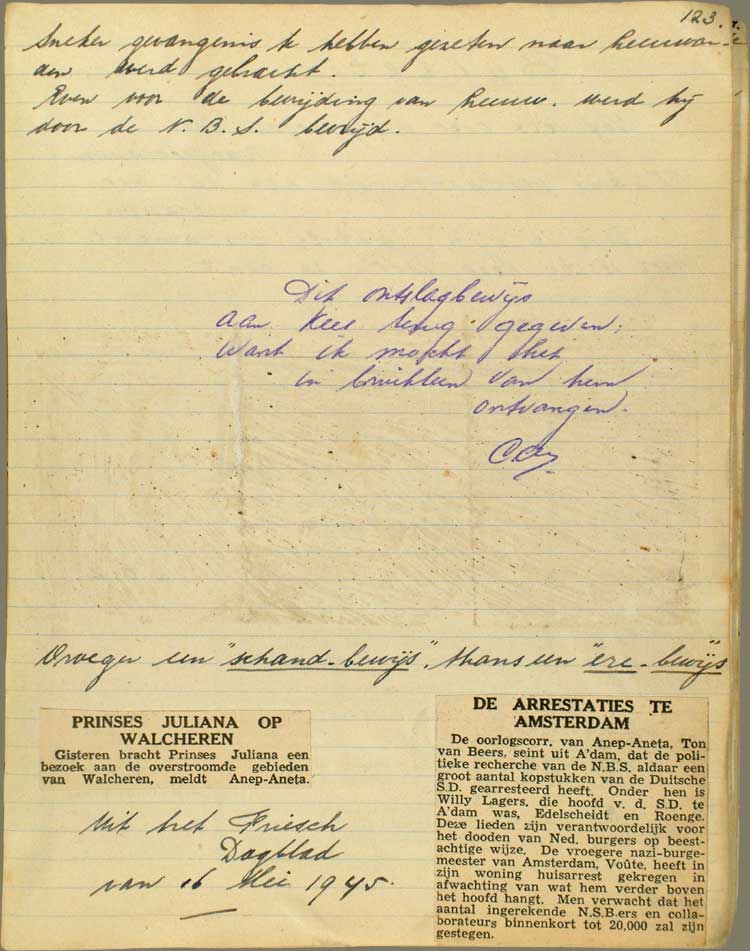 123.
Sneker gevangenis te hebben gezeten naar Leeuwar-
den werd gebracht.
Even voor de bevrijding van Leeuw. werd hij
door de N.B.S. bevrijd.
Dit ontslagbewijs
aan Kees terug gegeven;
Want ik mocht het
in bruikleen van hem
ontvangen.
Vroeger een "schand-bewijs", thans een "ere-bewijs"
PRINSES JULIANA OP
WALCHEREN
Gisteren bracht Prinses Juliana een
bezoek aan de overstroomde gebieden
van Walcheren, meldt Anep-Aneta.
Uit het Friesch
Dagblad
van 16 Mei 1945.
DE ARRESTATIES TE
AMSTERDAM
De oorlogscorr. van Anep-Aneta, Ton
van Beers, seint uit A'dam, dat de poli-
tieke recherche van de N.B.S. aldaar een
groot aantal kopstukken van de Duitsche
S.D. gearresteerd heeft. Onder hen is
Willy Lagers, die hoofd v. d. S.D. te
A'dam was, Edelscheidt en Roenge.
Deze lieden zijn verantwoordelijk voor
het dooden van Ned. burgers op beest-
achtige wijze. De vroegere nazi-burge-
meester van Amsterdam, Voûte, heeft in
zijn woning huisarrest gekregen in
afwachting van wat hem verder boven
het hoofd hangt. Men verwacht dat het
aantal ingerekende N.S.B.ers en colla-
borateurs binnenkort tot 20,000 zal zijn
gestegen.